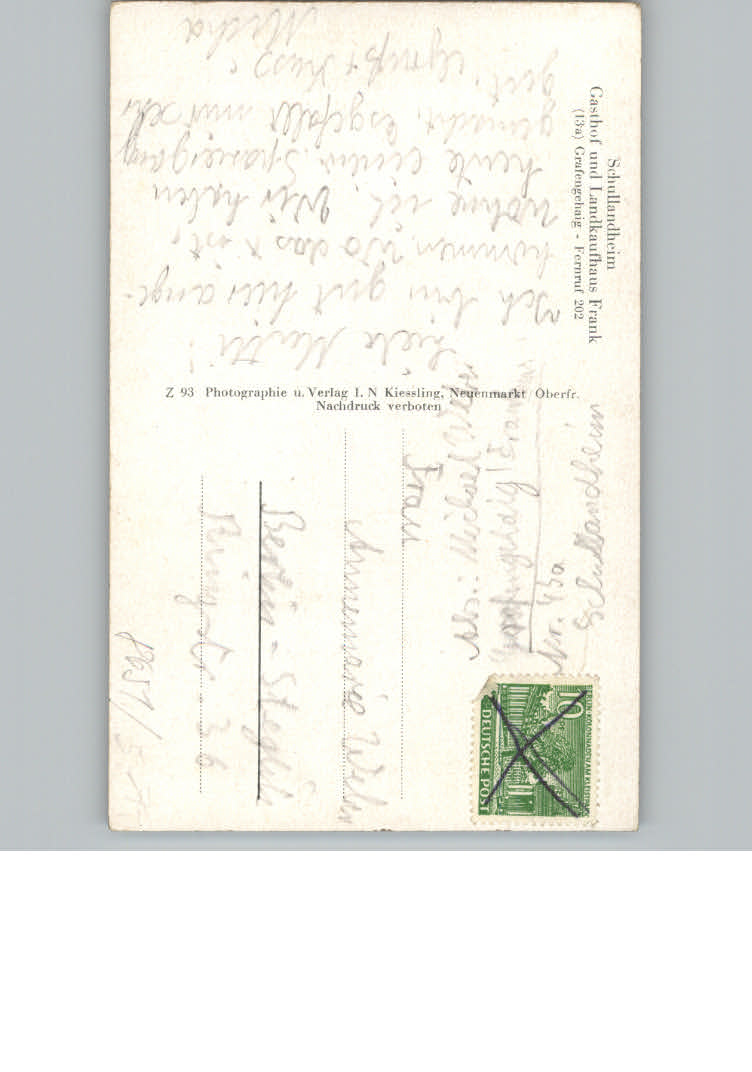 Schullandheim
Gasthof und Landkaufhaus Frank
(13a) Grafengehaig - Fernruf 202
Liebe Mutti!
Ich bin gut hier ange-
kommen. Wo das x ist,
wohne ich. Wir haben
heute einen Spaziergang
gemacht. Es gefällt mir sehr
gut. Gruß + Kuss
Micha
Z 93 Photographie u. Verlag I. N Kiessling, Neuenmarkt Oberfr.
Nachdruck verboten
Abs.: Michael Weber
Nr. 13a
Schullandheim
Frau
Annemarie Weber
Berlin - Steglitz
36
10
DEUTSCHE POST